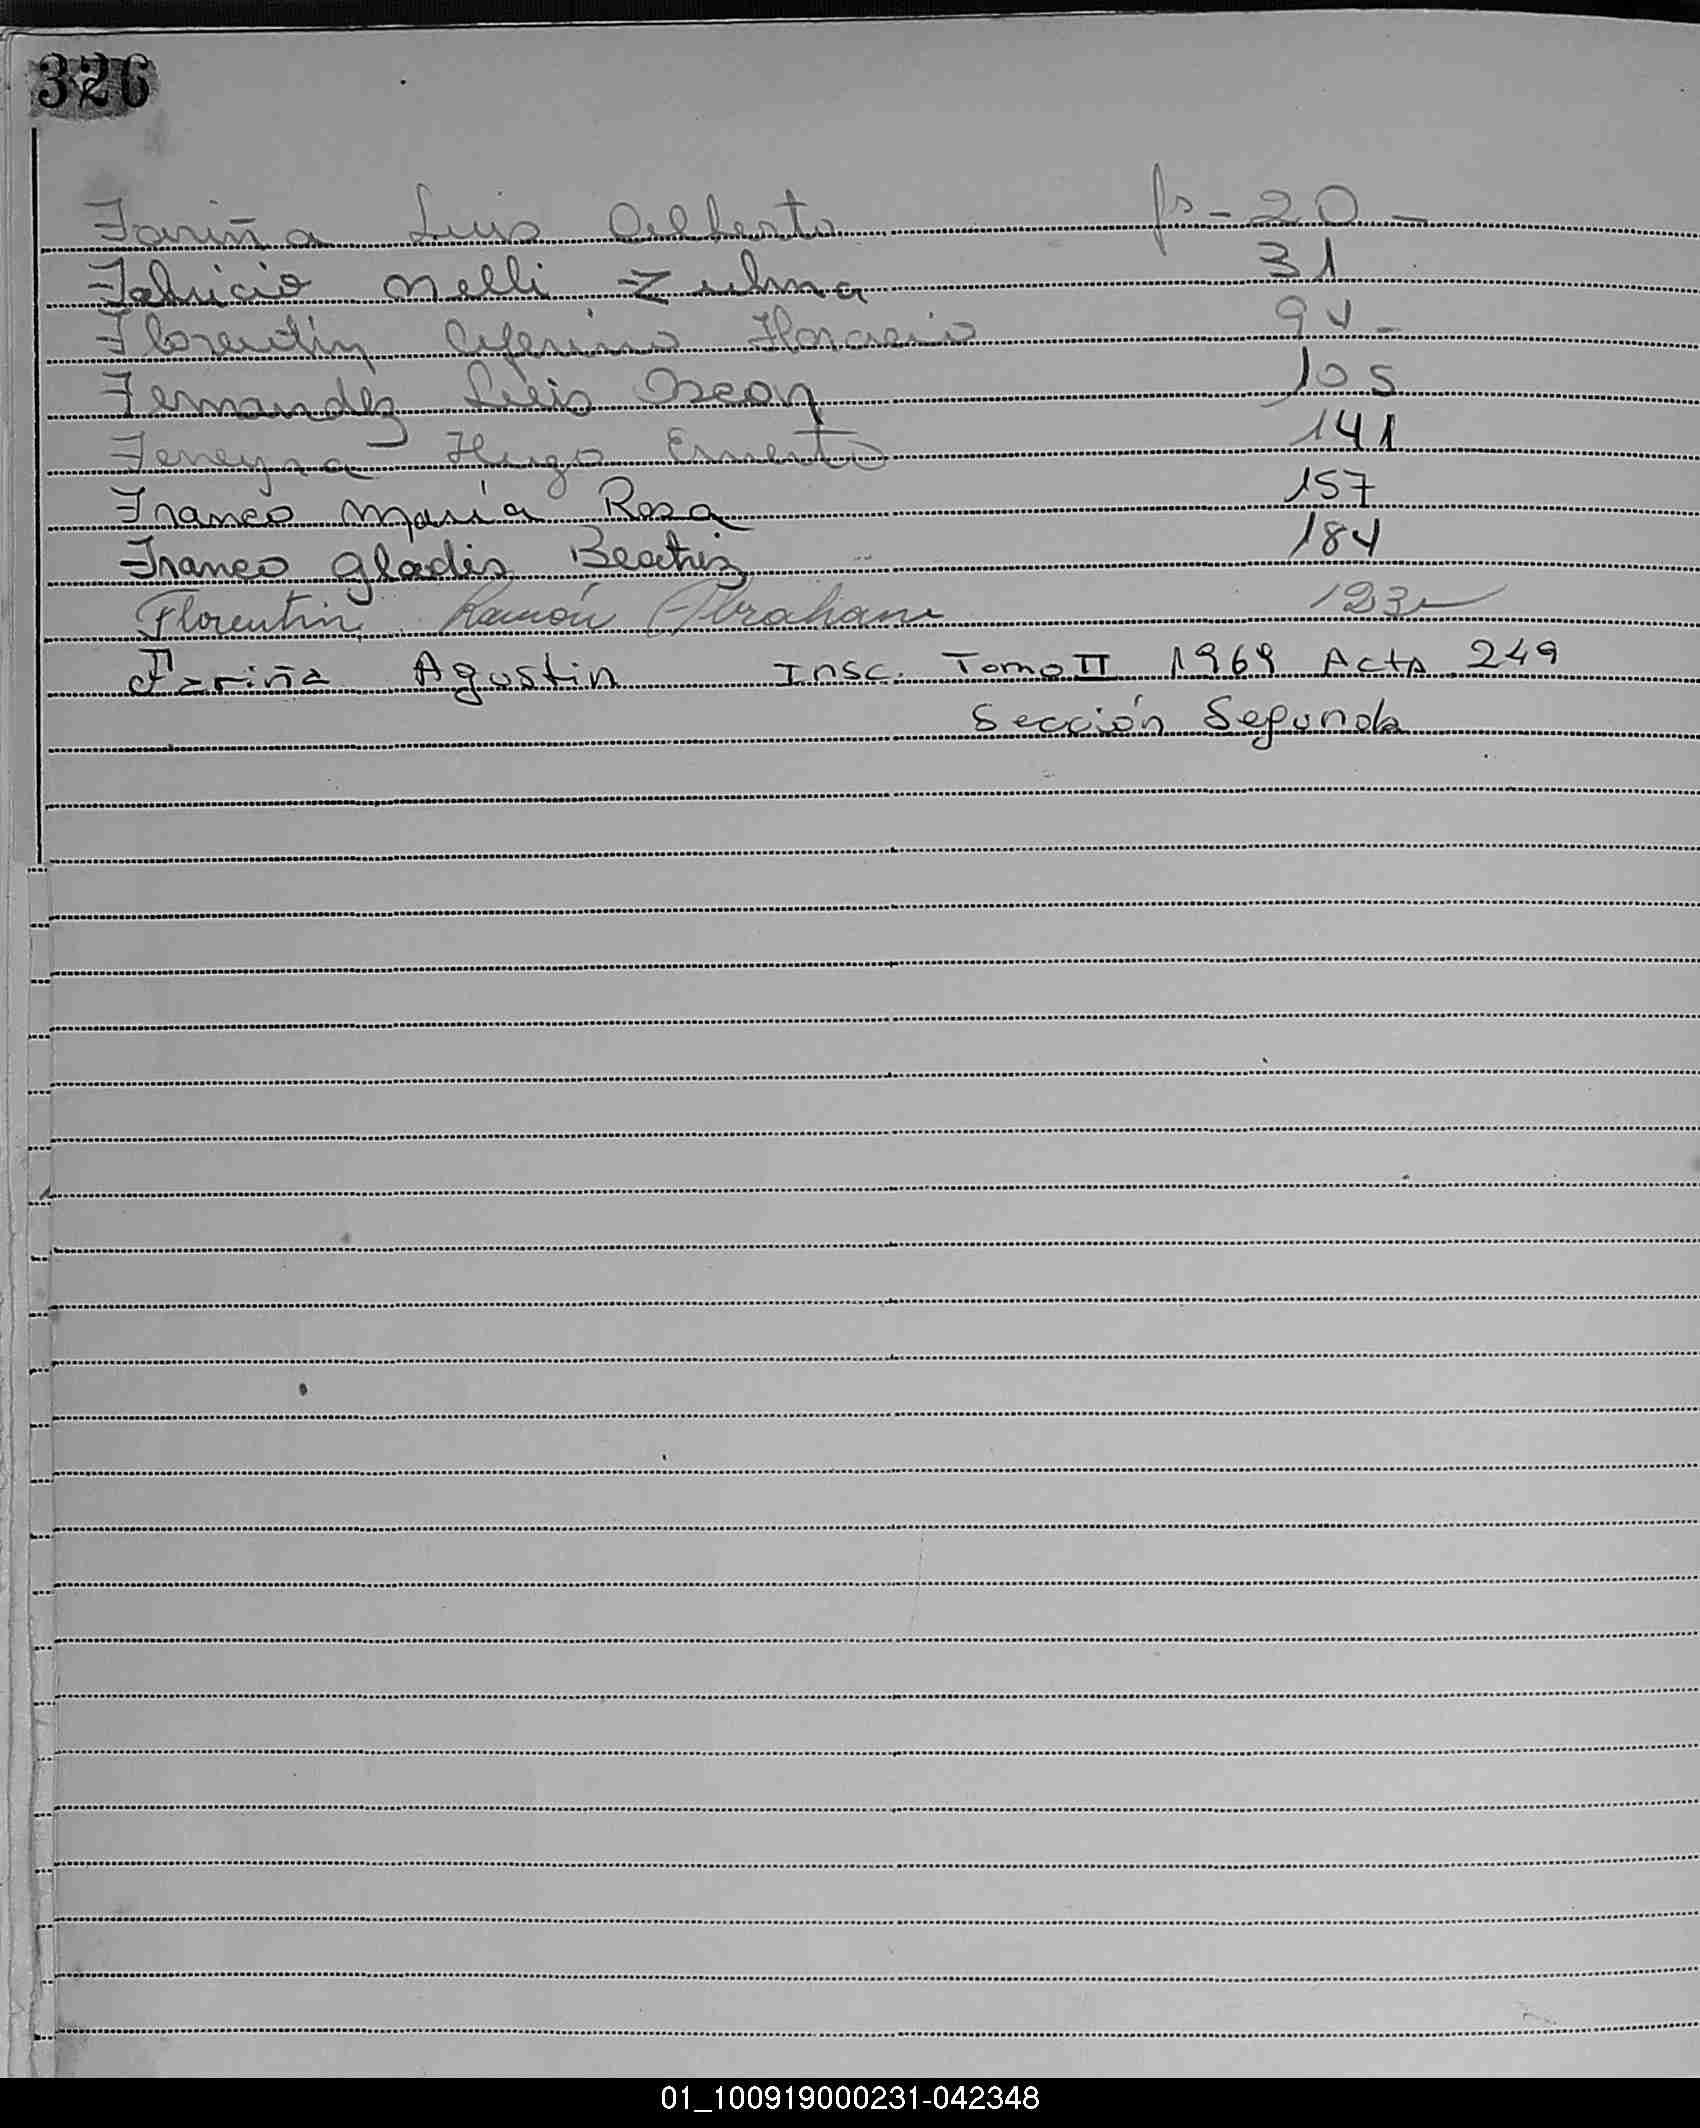 326
Fariña Luis Alberto fs - 20 -
Fabricio Nelli Zulma 31
Florentín Ceferino Horacio 94 -
Fernandez Luis Oscar 105
Ferreyra Hugo Ernesto 141
Franco María Rosa 157
Franco Gladis Beatriz 184
Florentin Ramón Abraham 123
Fariña Agustin Insc. Tomo II 1969 Acta 249
Sección Segunda
01_100919000231-042348